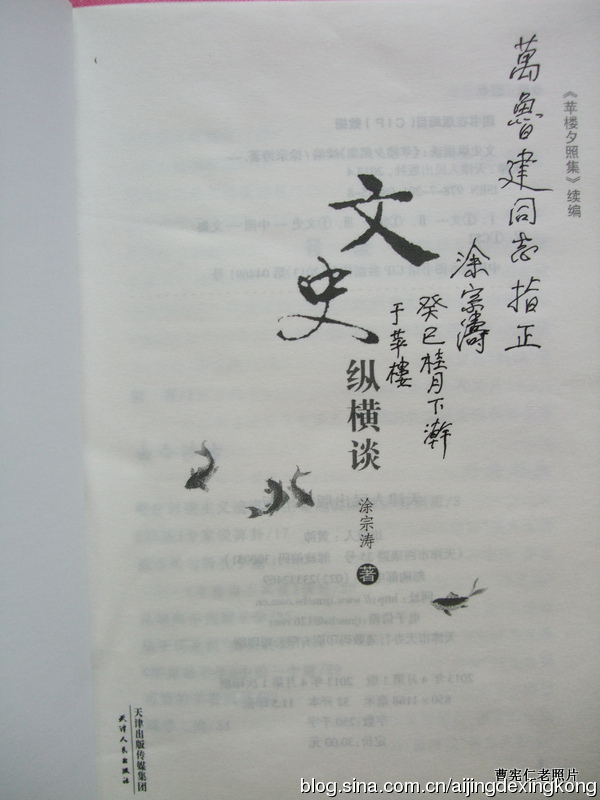 《苹楼夕照集》续编
萬魯建同志指正
涂宗濤
癸巳桂月下澣
于苹樓
文史
纵横谈
涂宗涛 著
天津出版传媒集团
天津人民出版社
曹宪仁老照片
blog.sina.com.cn/aijingdexingkong